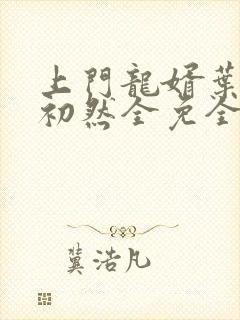 上門龍婿葉
初然全免全
冀浩凡